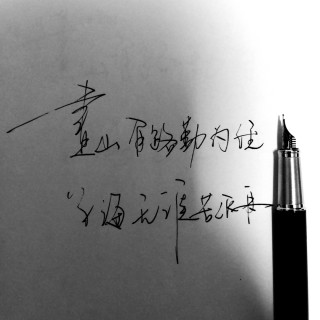 書山有路勤为径
学海无涯苦作舟